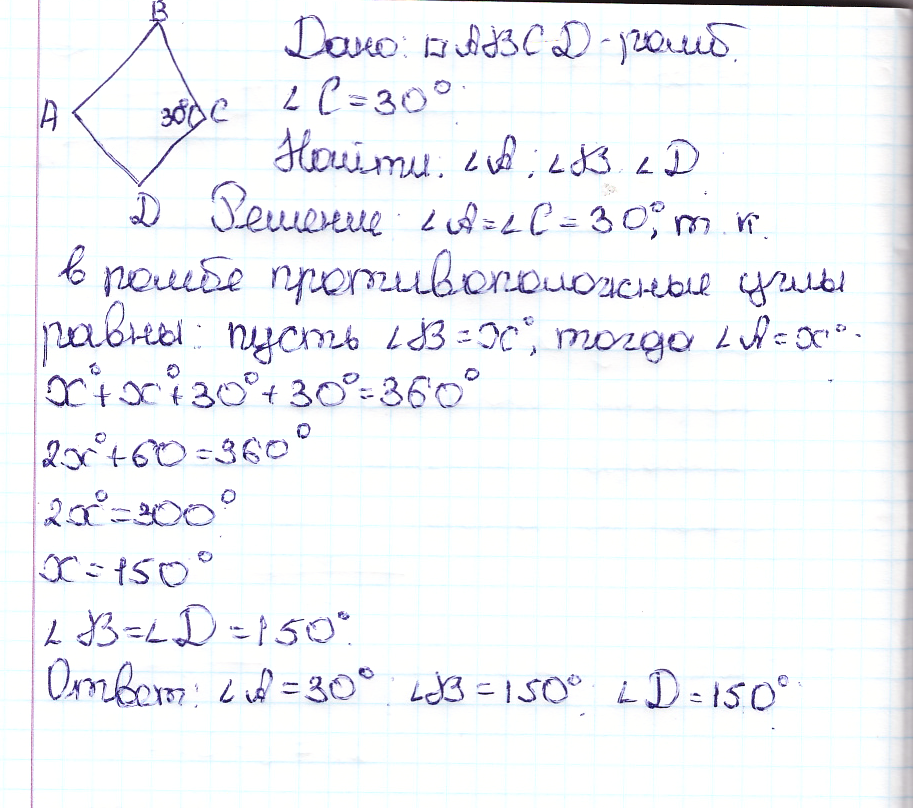 B
Дано: □ ABCD - ромб.
A 30° C ∠C = 30°
Найти: ∠A; ∠B ∠D
D Решение: ∠A = ∠C = 30°, т. к.
в ромбе противоположные углы
равны: пусть ∠B = x°, тогда ∠A = x°.
x° + x° + 30° + 30° = 360°
2x° + 60 = 360°
2x° = 300°
x = 150°
∠B = ∠D = 150°.
Ответ: ∠A = 30° ∠B = 150° ∠D = 150°